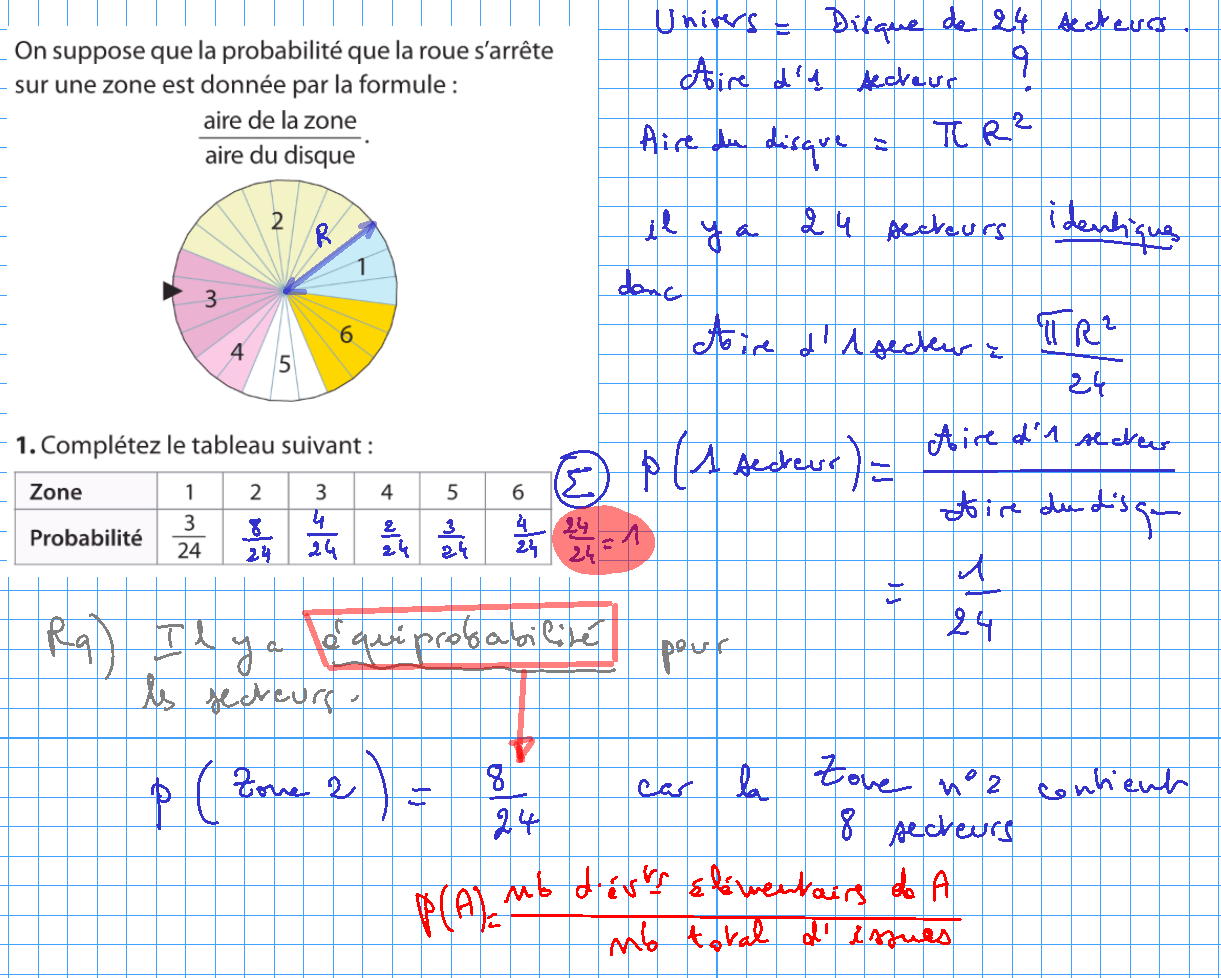 On suppose que la probabilité que la roue s'arrête
sur une zone est donnée par la formule :
aire de la zone
aire du disque .
2
R
1
3
6
4
5
1. Complétez le tableau suivant :
Zone 1 2 3 4 5 6 Σ
Probabilité 3/24 8/24 4/24 2/24 3/24 4/24 24/24 = 1
Univers = Disque de 24 secteurs.
Aire d'1 secteur ?
Aire du disque = π R²
il y a 24 secteurs identiques
donc
Aire d'1 secteur = π R² / 24
p(1 secteur) = Aire d'1 secteur / Aire du disq
= 1/24
Rq) Il y a équiprobabilité pour
les secteurs.
p(Zone 2) = 8/24 car la Zone n°2 contient
8 secteurs
p(A) = nb d'évts élémentairs de A
nb total d'issues